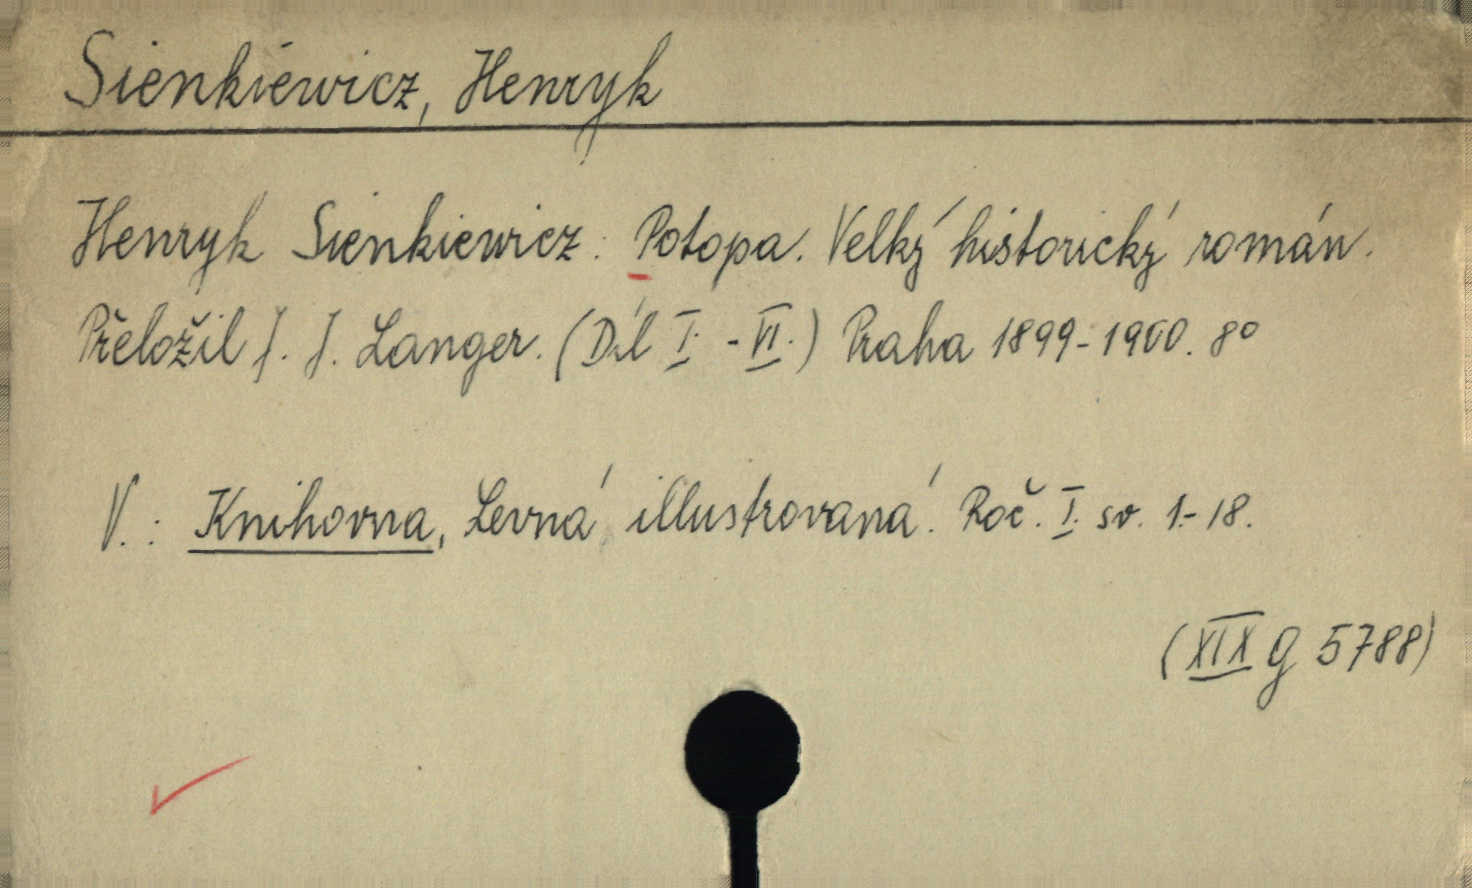 Sienkiewicz, Henryk
Henryk Sienkiewicz: Potopa. Velký historický román.
Přeložil J. J. Langer. (Díl I. - VI.) Praha 1899-1900. 8°
V.: Knihovna, Levná illustrovaná. Roč. I. sv. 1.-18.
(XIX g 5788)